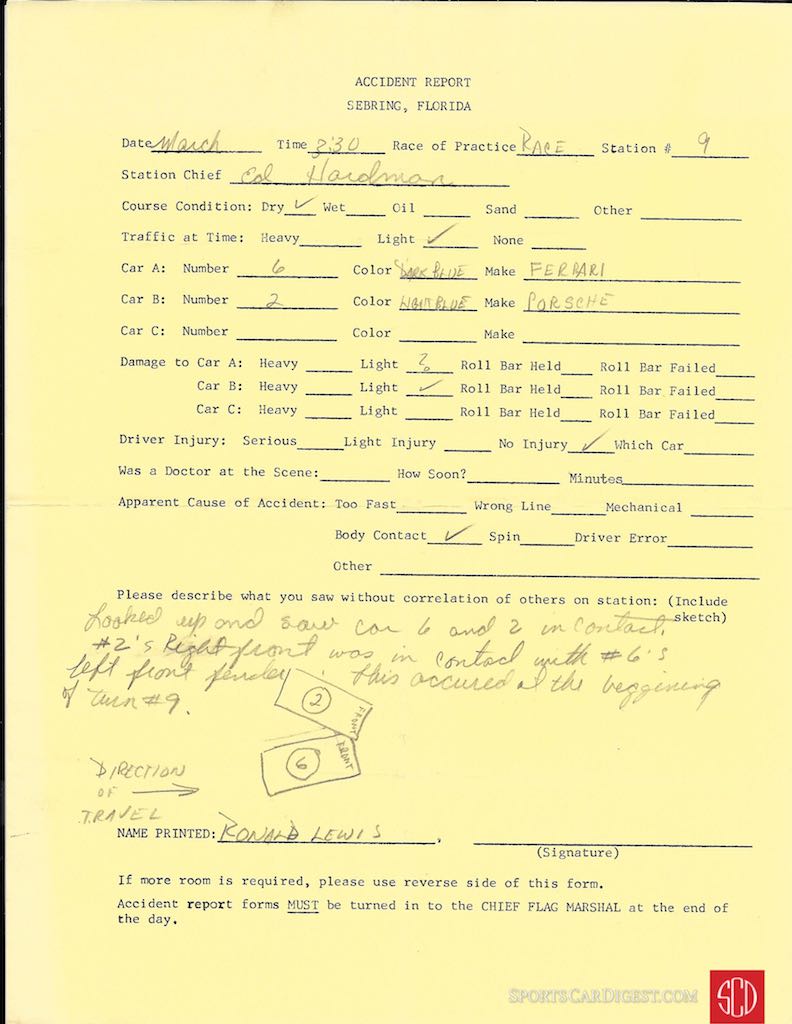 ACCIDENT REPORT
SEBRING, FLORIDA
Date March Time 3:30 Race of Practice RACE Station # 9
Station Chief Ed Hardman
Course Condition: Dry ✓ Wet Oil Sand Other
Traffic at Time: Heavy Light ✓ None
Car A: Number 6 Color DARK BLUE Make FERRARI
Car B: Number 2 Color LIGHT BLUE Make PORSCHE
Car C: Number Color Make
Damage to Car A: Heavy Light ? Roll Bar Held Roll Bar Failed
Car B: Heavy Light ✓ Roll Bar Held Roll Bar Failed
Car C: Heavy Light Roll Bar Held Roll Bar Failed
Driver Injury: Serious Light Injury No Injury ✓ Which Car
Was a Doctor at the Scene: How Soon? Minutes
Apparent Cause of Accident: Too Fast Wrong Line Mechanical
Body Contact ✓ Spin Driver Error
Other
Please describe what you saw without correlation of others on station: (Include
sketch)
Looked up and saw car 6 and 2 in contact.
#2's Right front was in contact with #6's
left front fender. This accured at the beggining
of turn #9.
2 FRONT
6 FRONT
DIRECTION
OF →
TRAVEL
NAME PRINTED: RONALD LEWIS .
(Signature)
If more room is required, please use reverse side of this form.
Accident report forms MUST be turned in to the CHIEF FLAG MARSHAL at the end of
the day.
SPORTSCARDIGEST.COM
SCD